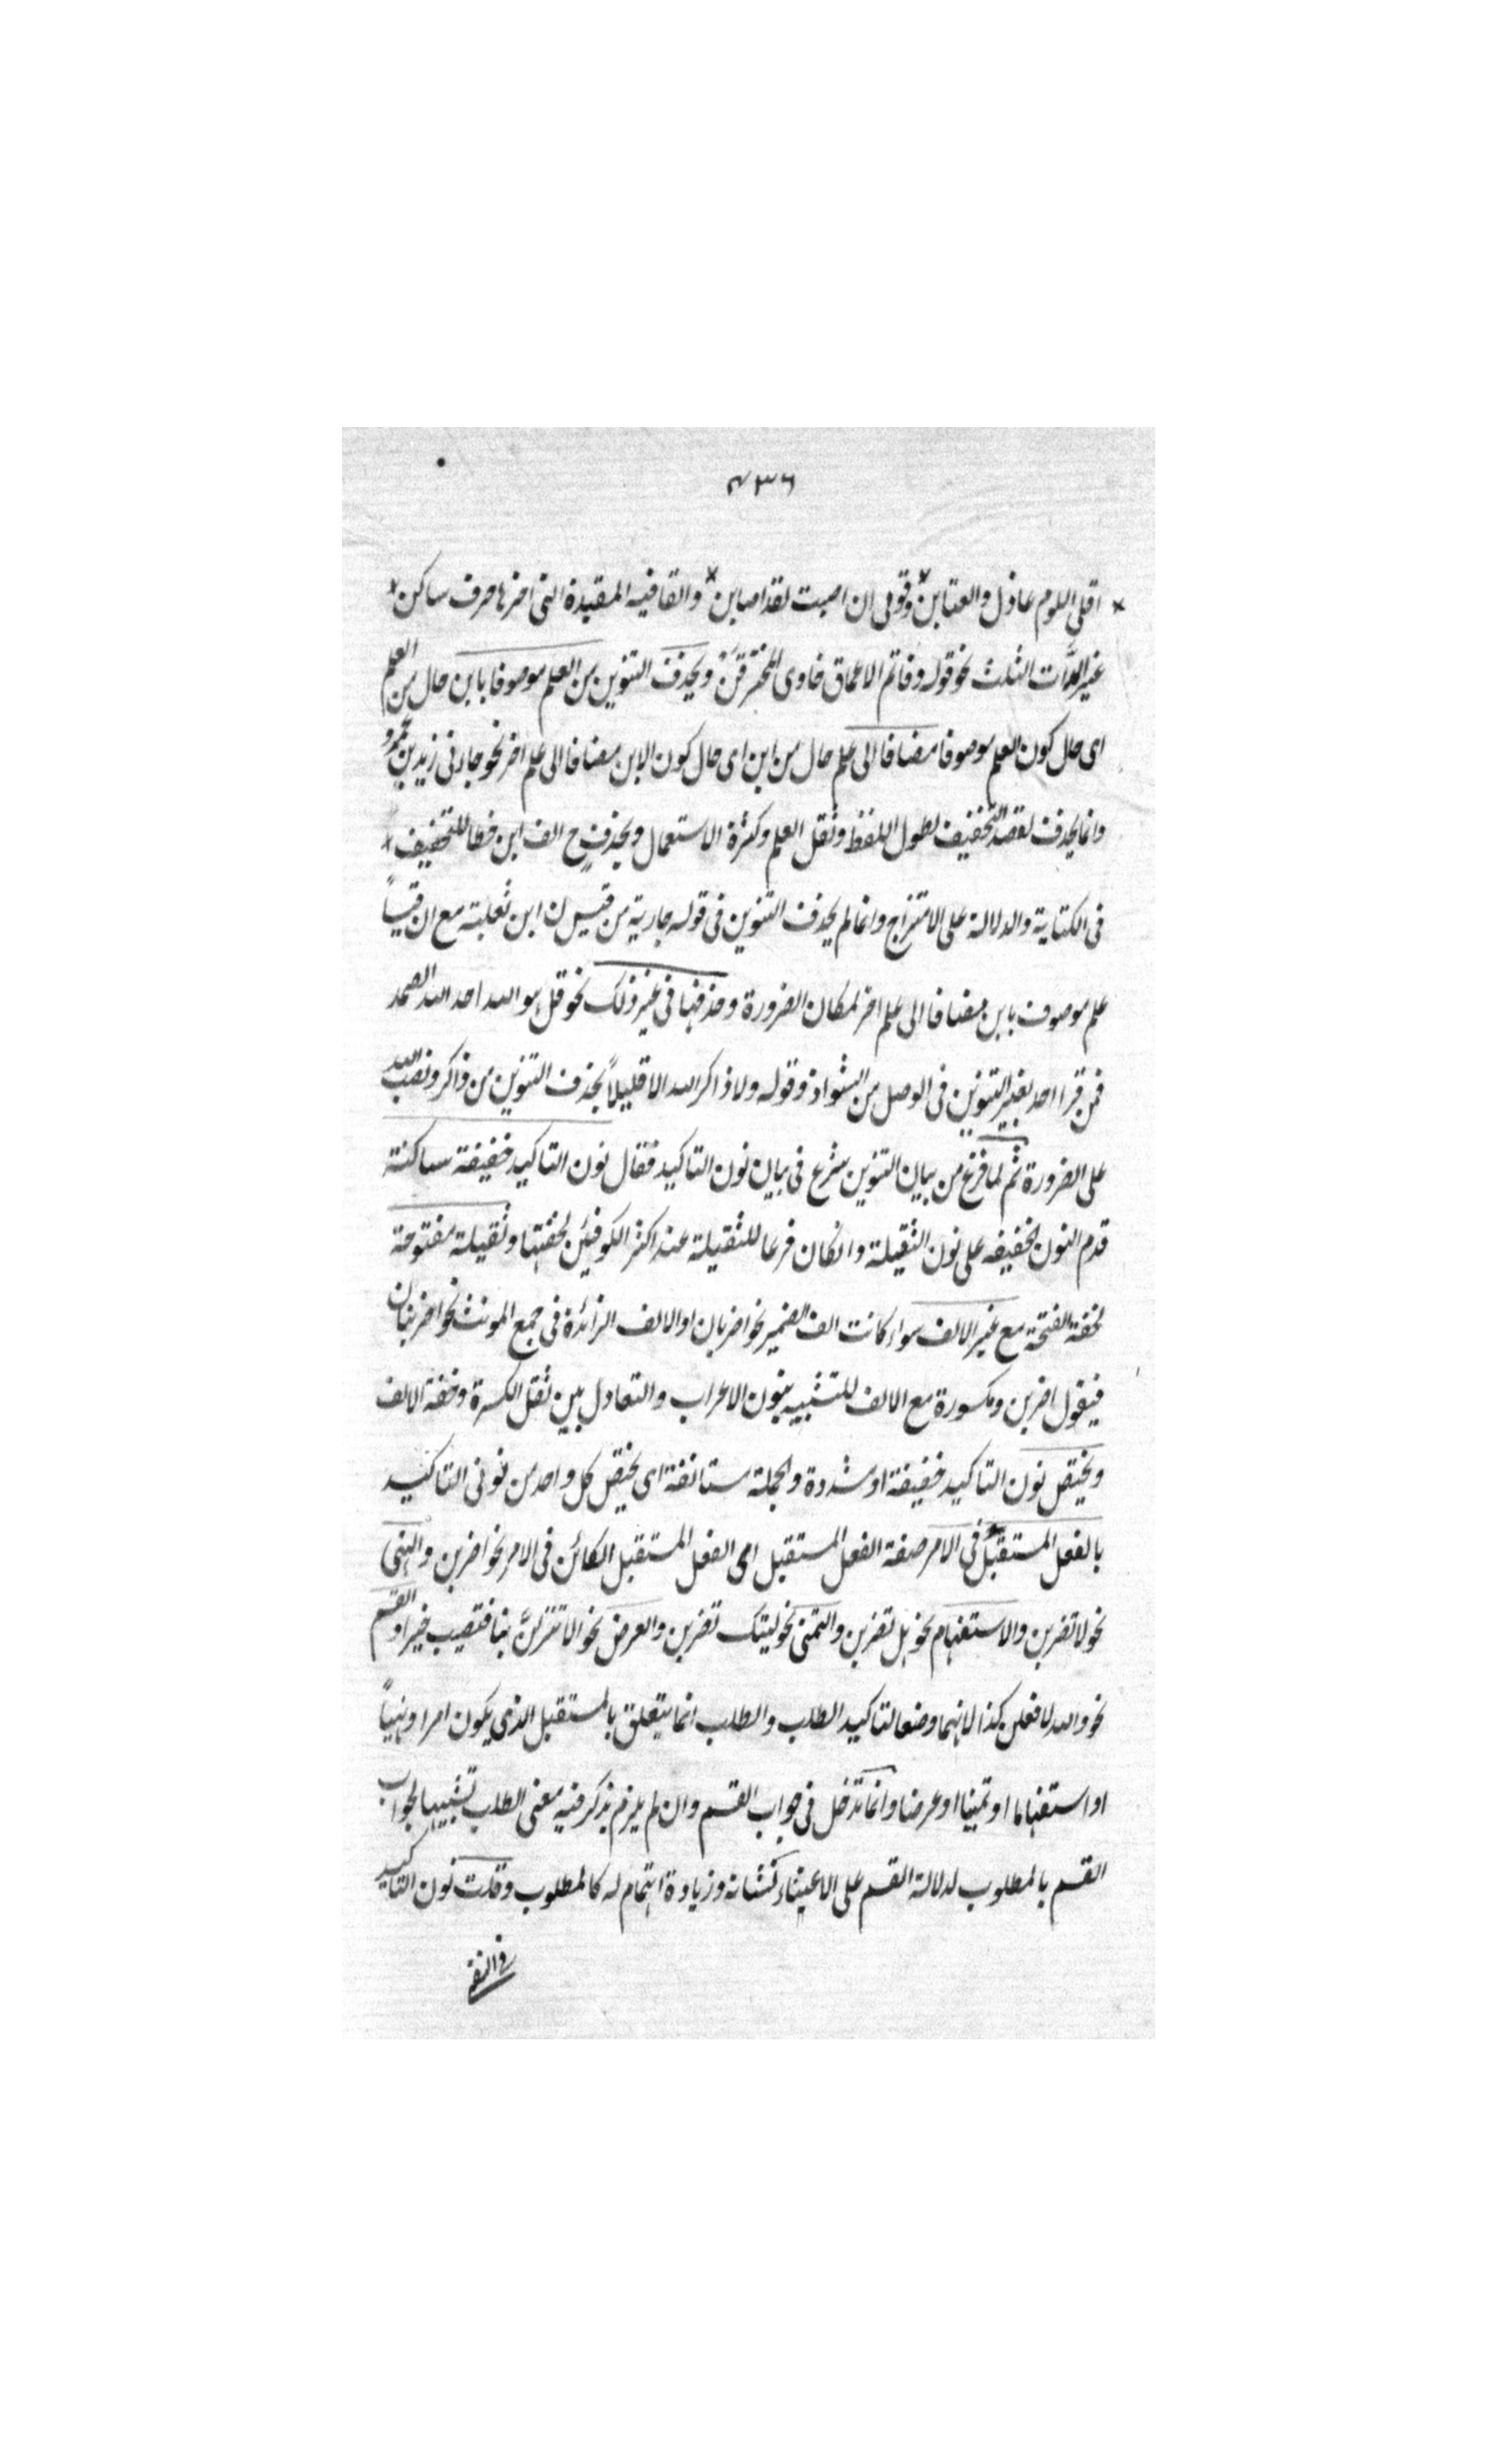 ٤٣٦
اقلى اللوم عاذل والعتابن وقولى ان اصبت لقد اصابن والقافيه المقيدة التى اخرها حرف ساكن
غير المدات الثلث نحو قوله وقاتم الاعماق خاوى المخترقن ويحذف التنوين من العلم موصوفا بابن حال من العلم
اى حال كون العلم موصوفا مضافا الى علم حال من ابن اى حال كون الابن مضافا الى علم اخر نحو جاءنى زيد بن عمرو
وانما يحذف لقصد التخفيف لطول اللفظ وثقل العلم وكثرة الاستعمال ويحذف ح الف ابن خطا للتخفيف
فى الكتابة والدلالة على الامتزاج وانما لم يحذف التنوين فى قوله جارية من قيس ن ابن ثعلبة مع ان قيساً
علم موصوف بابن مضافا الى علم اخر لمكان الضرورة وحذفها فى غير ذلك نحو قل هو الله احد الله الصمد
فمن قرا احد بغير التنوين فى الوصل من الشواذ وقوله ولا ذاكر الله الا قليلاً بحذف التنوين من ذاكر ونصب الله
على الضرورة ثم لما فرغ من بيان التنوين شرع فى بيان نون التاكيد فقال نون التاكيد خفيفة ساكنة
قدم النون الخفيفه على نون الثقيلة وانكان فرعا للثقيلة عند اكثر الكوفيين لخفتها وثقيلة مفتوحة
لخفة الفتحة مع غير الالف سواء كانت الف الضمير نحو اضربان او الالف الزائدة فى جمع المونث نحو اضربنان
فيقول اضربن ومكسورة مع الالف للتشبيه بنون الاعراب والتعادل بين ثقل الكسرة وخفة الالف
ويختص نون التاكيد خفيفة او مشددة والجملة مستانفة اى يختص كل واحد من نونى التاكيد
بالفعل المستقبل فى الامر صفة الفعل المستقبل اى الفعل المستقبل الكائن فى الامر نحو اضربن والنهى
نحو لا تضربن والاستفهام نحو هل تضربن والتمنى نحو ليتك تضربن والعرض نحو الا تنزلنّ بنا فتصيب خيرا والقسم
نحو والله لافعلن كذا لانهما وضعا لتاكيد الطلب والطلب انما يتعلق بالمستقبل الذى يكون امرا او نهياً
او استفهاما او تمنيا او عرضا وانما تدخل فى جواب القسم وان لم يلزم بذكر فيه معنى الطلب تشبيها لجواب
القسم بالمطلوب لدلالة القسم على الاعتناء بشانه وزيادة اهتمام له كالمطلوب وقلت نون التاكيد
فى النفى